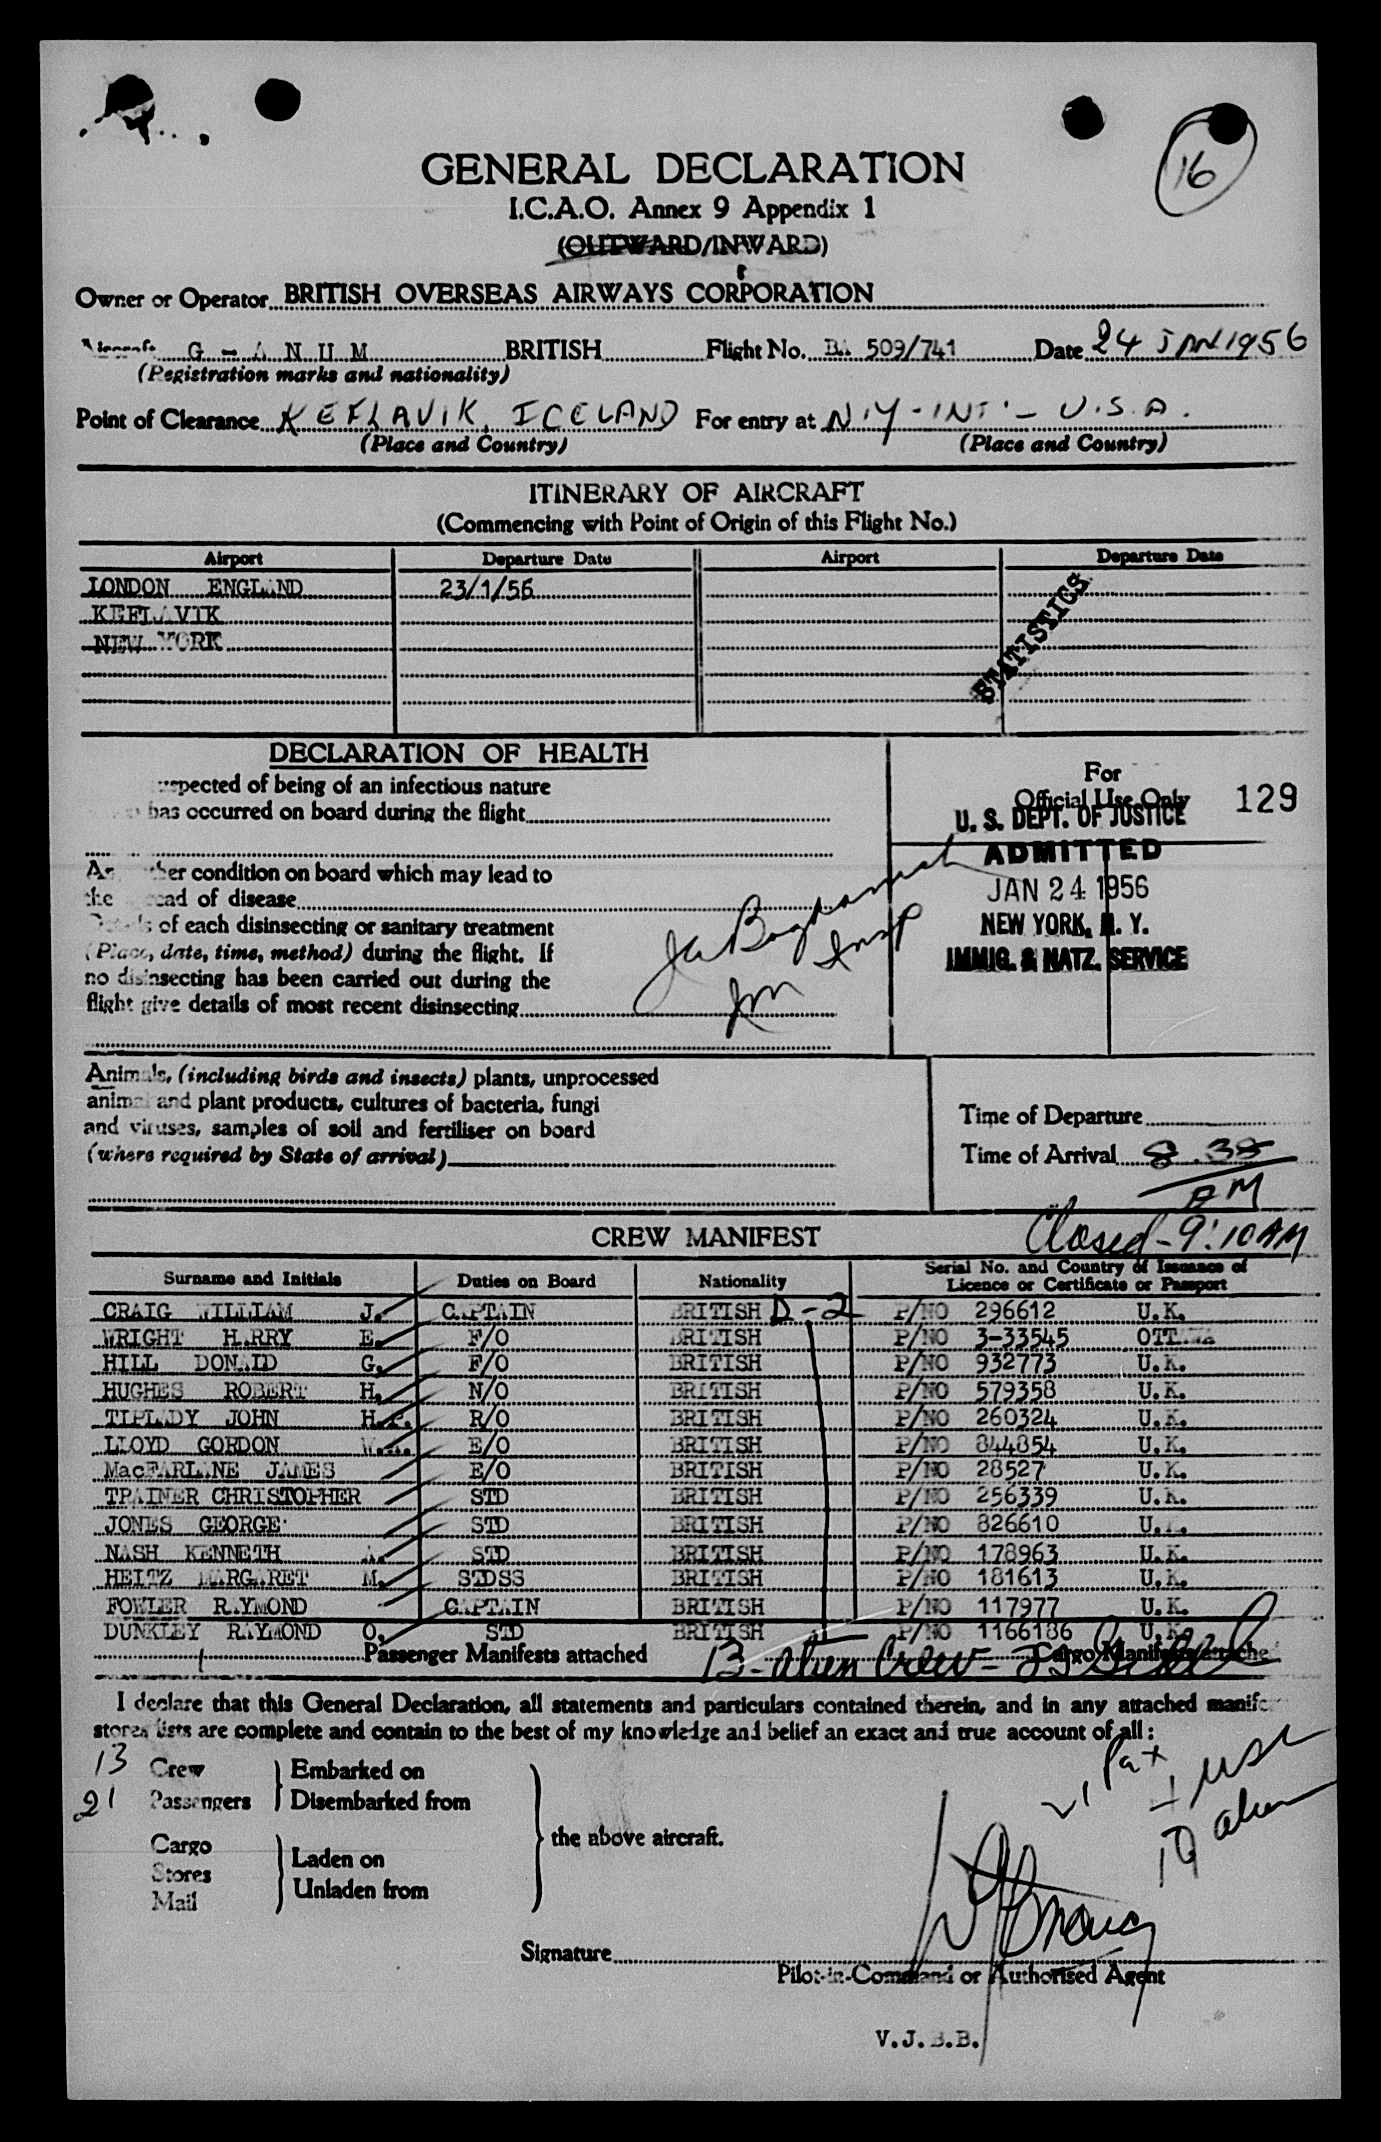 16
GENERAL DECLARATION
I.C.A.O. Annex 9 Appendix 1
(OUTWARD/INWARD)
Owner or Operator BRITISH OVERSEAS AIRWAYS CORPORATION
Aircraft G - A N U M BRITISH Flight No. BA 509/741 Date 24 JAN 1956
(Registration marks and nationality)
Point of Clearance KEFLAVIK, ICELAND For entry at N.Y-INT'- U.S.A.
(Place and Country) (Place and Country)
ITINERARY OF AIRCRAFT
(Commencing with Point of Origin of this Flight No.)
Airport Departure Date Airport Departure Date
LONDON ENGLAND 23/1/56
KEFLAVIK
NEW YORK
STATISTICS
DECLARATION OF HEALTH
suspected of being of an infectious nature
has occurred on board during the flight
For
Official Use Only 129
U. S. DEPT. OF JUSTICE
ADMITTED
JAN 24 1956
NEW YORK, N. Y.
IMMIG. & NATZ. SERVICE
Any other condition on board which may lead to
the spread of disease
Details of each disinsecting or sanitary treatment
(Place, date, time, method) during the flight. If
no disinsecting has been carried out during the
flight give details of most recent disinsecting
Insp
Imm
Animals, (including birds and insects) plants, unprocessed
animal and plant products, cultures of bacteria, fungi
and viruses, samples of soil and fertiliser on board
(where required by State of arrival)
Time of Departure
Time of Arrival 8.38
AM
Closed - 9:10 AM
CREW MANIFEST
Surname and Initials Duties on Board Nationality Serial No. and Country of Issuance of Licence or Certificate or Passport
CRAIG WILLIAM J. CAPTAIN BRITISH D-2 P/NO 296612 U.K.
WRIGHT HARRY E. F/O BRITISH P/NO 3-33545 OTTAWA
HILL DONALD G. F/O BRITISH P/NO 932773 U.K.
HUGHES ROBERT H. N/O BRITISH P/NO 579358 U.K.
TIPLADY JOHN H.P. R/O BRITISH P/NO 260324 U.K.
LLOYD GORDON E/O BRITISH P/NO 844854 U.K.
MacFARLANE JAMES E/O BRITISH P/NO 28527 U.K.
TRAINER CHRISTOPHER STD BRITISH P/NO 256339 U.K.
JONES GEORGE STD BRITISH P/NO 826610 U.K.
NASH KENNETH A. STD BRITISH P/NO 178963 U.K.
HEITZ MARGARET M. STDSS BRITISH P/NO 181613 U.K.
FOWLER RAYMOND CAPTAIN BRITISH P/NO 117977 U.K.
DUNKLEY RAYMOND O. STD BRITISH P/NO 1166186 U.K.
1 Passenger Manifests attached 13 - alien Crew - Cargo Manifests attached
I declare that this General Declaration, all statements and particulars contained therein, and in any attached manifest
stores lists are complete and contain to the best of my knowledge and belief an exact and true account of all:
13 Crew Embarked on
21 Passengers Disembarked from
the above aircraft.
Cargo
Stores Laden on
Mail Unladen from
21 Pax
USC
19 alien
Signature
Pilot-in-Command or Authorised Agent
V.J.B.B.